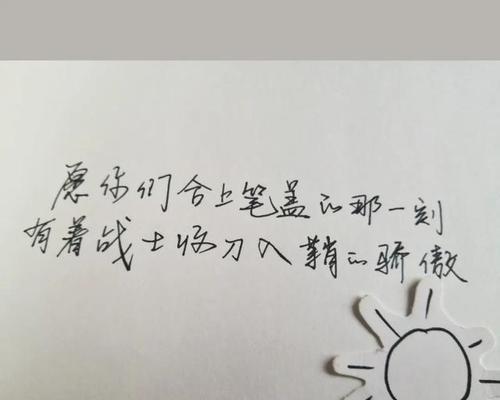 愿你们合上笔盖的那一刻
有着战士收刀入鞘的骄傲